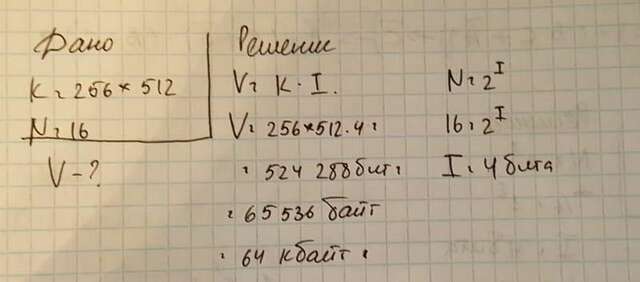 Дано
K = 256 * 512
N = 16
V - ?
Решение
V = K · I.
V = 256*512·4 =
= 524 288 бит =
= 65 536 байт
= 64 кбайт.
N = 2^I
16 = 2^I
I = 4 бита